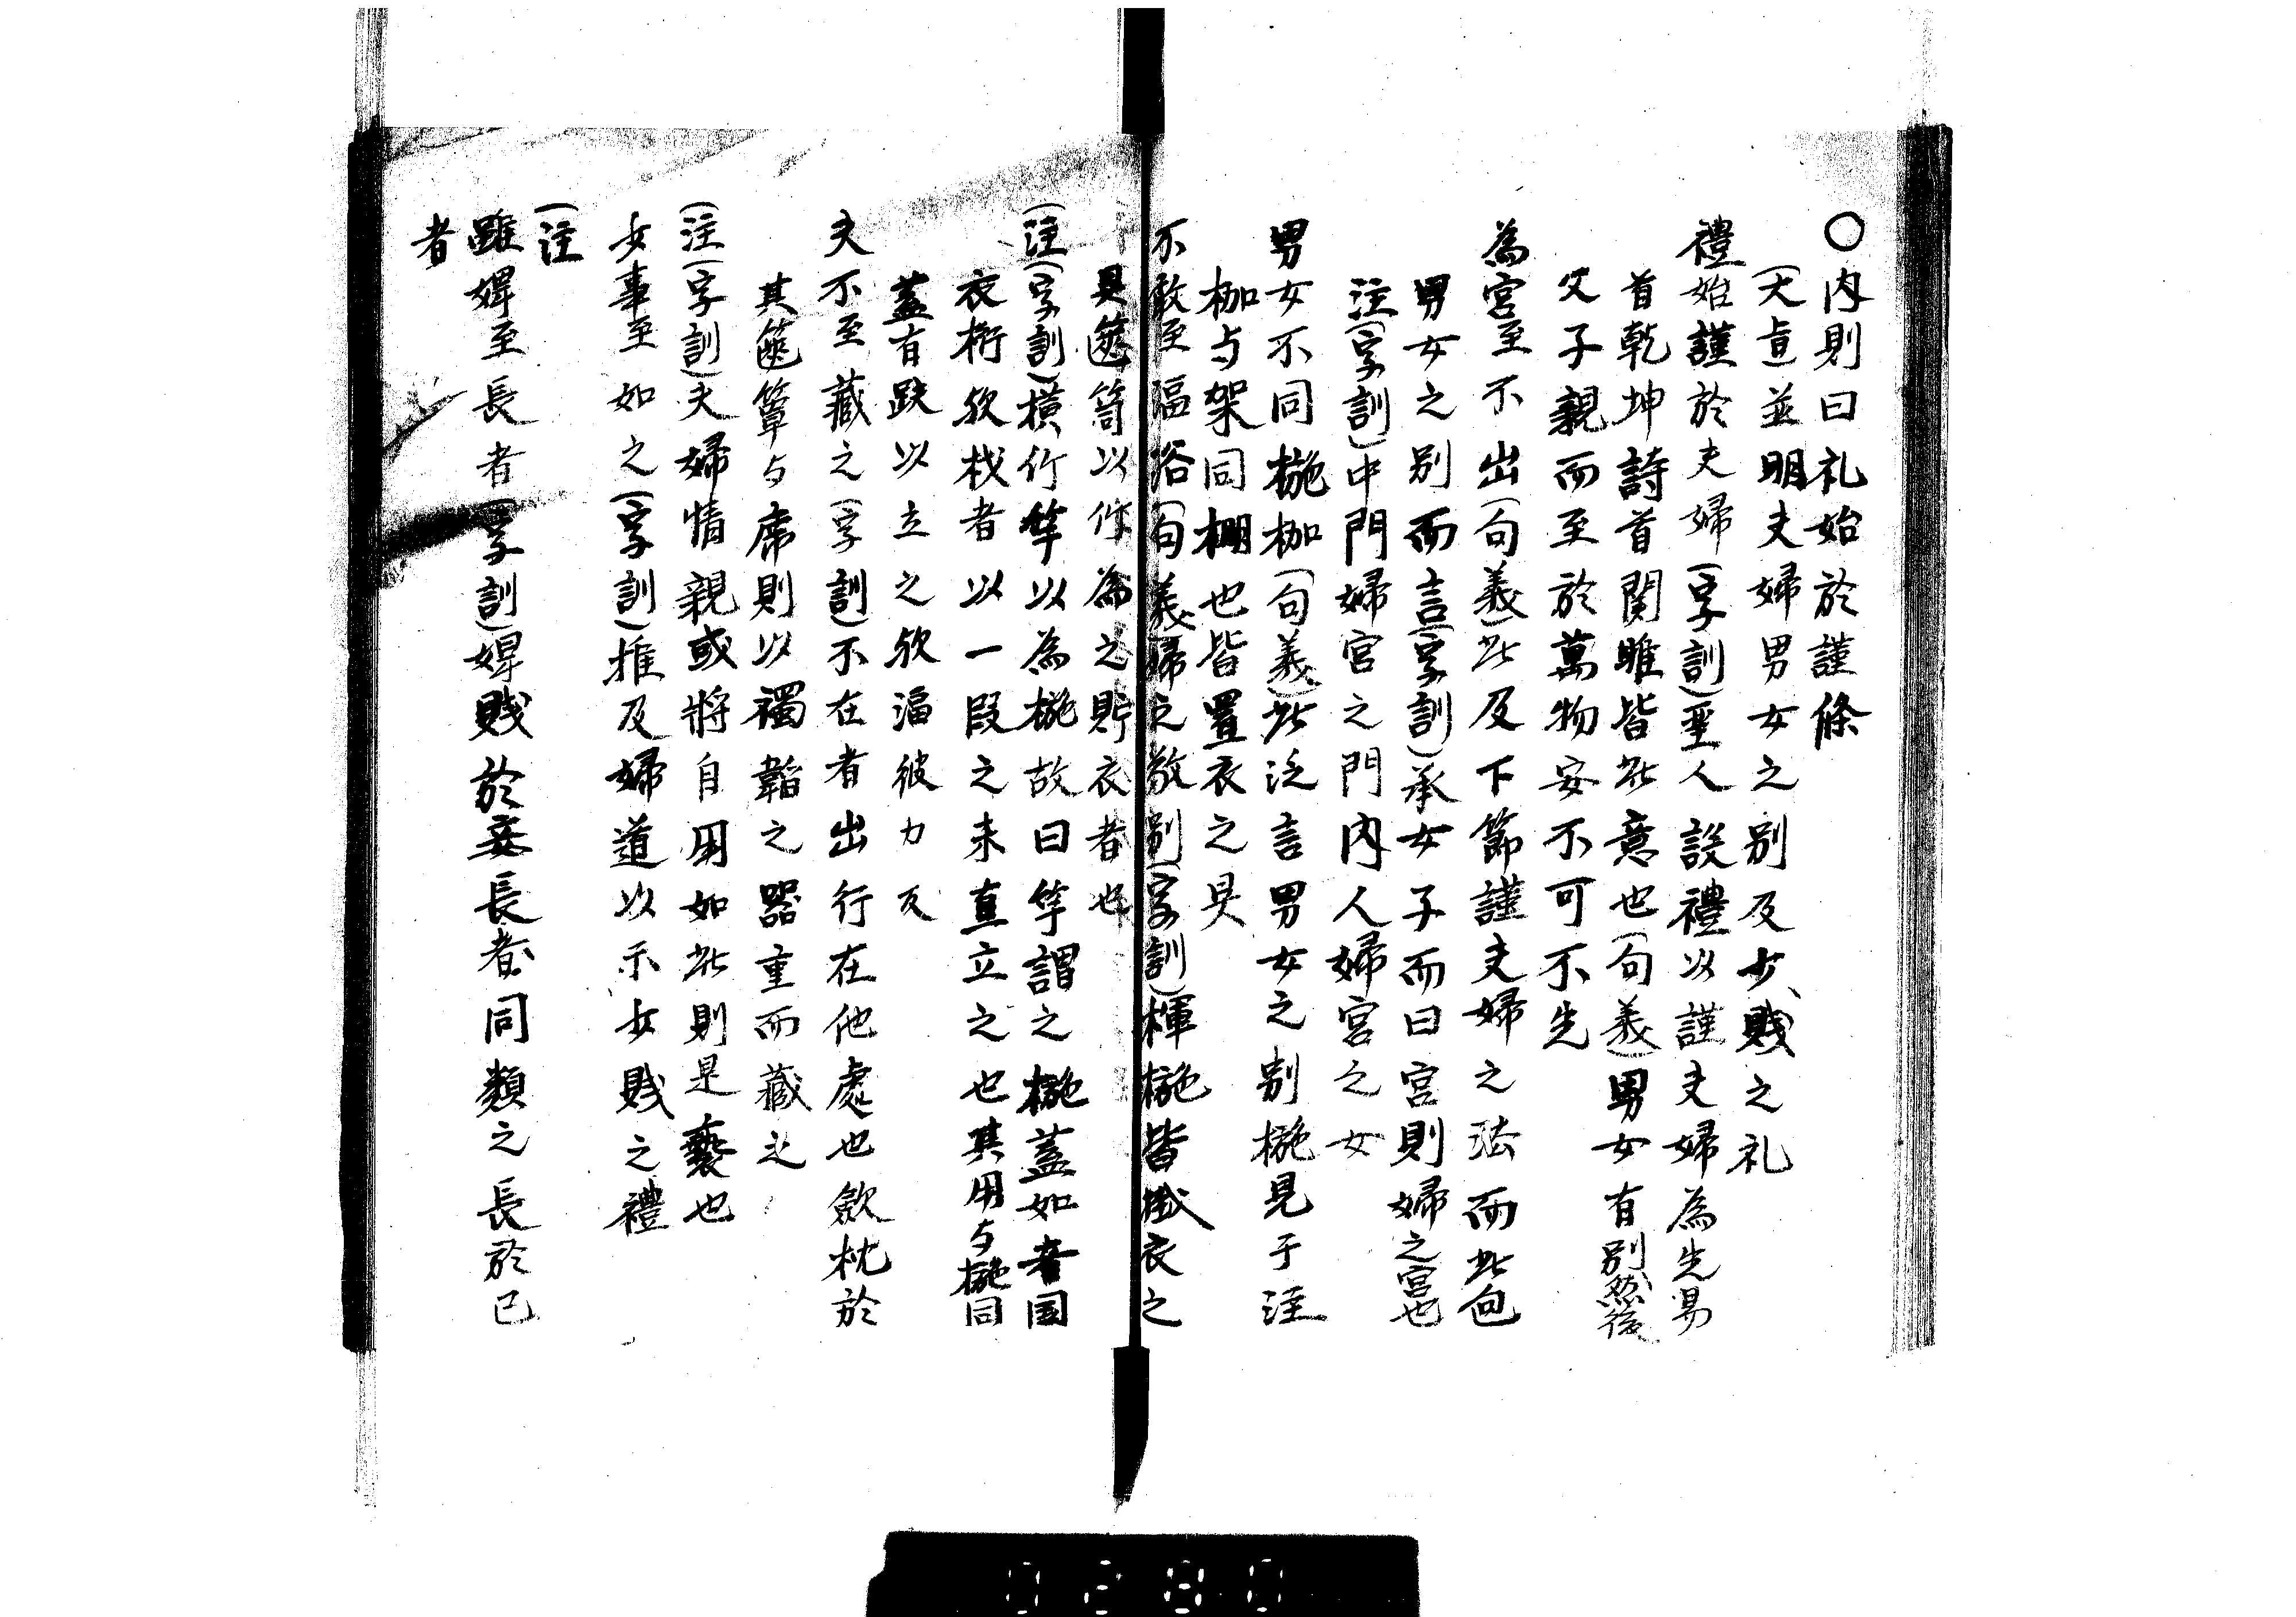 〇内則曰礼始於謹條
(大㫖並明夫婦男女之别及少賤之礼
禮始謹於夫婦(字訓)聖人設禮以謹夫婦為先易
首乾坤詩首関雎皆此意也(句義)男女有别然後
父子親而至於萬物安不可不先
為宮至不出(句義)此及下節謹夫婦之法而此句
男女之别而言(字訓)承女子而曰宮則婦之宮也
注(字訓)中門婦宮之門内人婦宮之女
男女不同椸枷(句義)此泛言男女之别椸見于注
枷与架同棚也皆置衣之具
不敢至湢浴(句義)婦之敬别(字訓)楎椸皆掛衣之
具篋笥以竹為之貯衣者也
(注(字訓)横竹竿以為椸故曰竿謂之椸蓋如吾国
衣桁杙栈者以一段之末直立之也其用与椸同
蓋有趺以立之杙湢彼力反
夫不至藏之(字訓)不在者出行在他處也斂枕於
其篋簟与席則以襡韜之器重而藏之
(注(字訓)夫婦情親或將自用如此則是褻也
女事至如之(字訓)推及婦道以示少賤之禮
(注
雖婢至長者(字訓)婢賤於妾長者同類之長於己
者